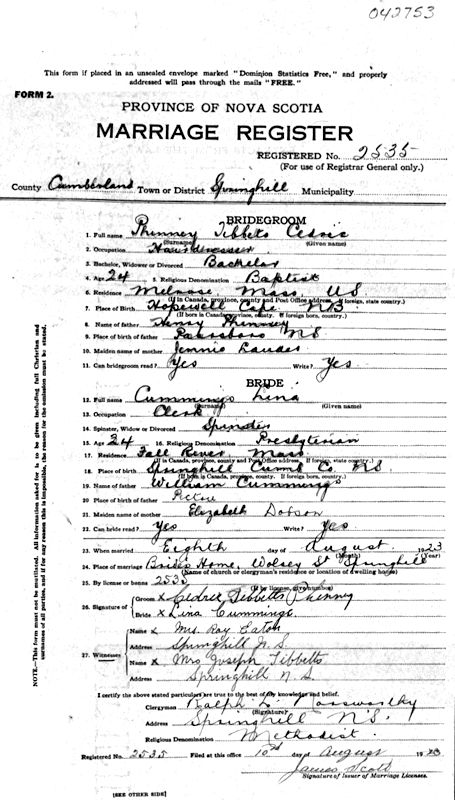 042753
This form if placed in an unsealed envelope marked "Dominion Statistics Free," and properly
addressed will pass through the mails "FREE."
FORM 2.
PROVINCE OF NOVA SCOTIA
MARRIAGE REGISTER
REGISTERED No. 2535
(For use of Registrar General only.)
County Cumberland Town or District Springhill Municipality
BRIDEGROOM
1. Full name Phinney Tibbets Cedric
(Surname) (Given name)
2. Occupation Hairdresser
3. Bachelor, Widower or Divorced Bachelor
4. Age 24 5. Religious Denomination Baptist
6. Residence Melrose Mass. US
(If in Canada, province, county and Post Office address. If foreign, state country.)
7. Place of Birth Hopewell Cape NB
(If born in Canada, province, county. If foreign born, country.)
8. Name of father Henry Phinney
9. Place of birth of father Parrsboro NS
10. Maiden name of mother Jennie
11. Can bridegroom read? Yes Write? Yes
BRIDE
12. Full name Cummings Lina
(Surname) (Given name)
13. Occupation Clerk
14. Spinster, Widow or Divorced Spinster
15. Age 24 16. Religious Denomination Presbyterian
17. Residence Fall River Mass.
(If in Canada, province, county and Post Office address. If foreign, state country.)
18. Place of birth Springhill Cumb Co. NS
(If born in Canada, province, county. If foreign born, country.)
19. Name of father William Cummings
20. Place of birth of father Pictou
21. Maiden name of mother Elizabeth Dobson
22. Can bride read? Yes Write? Yes
23. When married Eighth day of August 1923
(Month) (Year)
24. Place of marriage Brides Home, Wolsey St Springhill
(Name of church or clergyman's residence or location of dwelling house)
25. By license or banns 2535
(If by license, give number)
26. Signature of
Groom x Cedric Tibbetts Phinney
Bride x Lina Cummings
27. Witnesses
Name x Mrs. Ray Eaton
Address Springhill N.S.
Name x Mrs Joseph Tibbetts
Address Springhill N.S.
I certify the above stated particulars are true to the best of my knowledge and belief.
Clergyman Ralph L. Nosworthy
(Signature)
Address Springhill N.S.
Religious Denomination Methodist
Registered No. 2535 Filed at this office 10th day of August 1923
James Scott
Signature of Issuer of Marriage Licenses.
[SEE OTHER SIDE]
NOTE.—This form must not be mutilated. All information asked for is to be given including full Christian and
surnames of all parties, and if for any reason this is impossible, the reason for the omission must be stated.